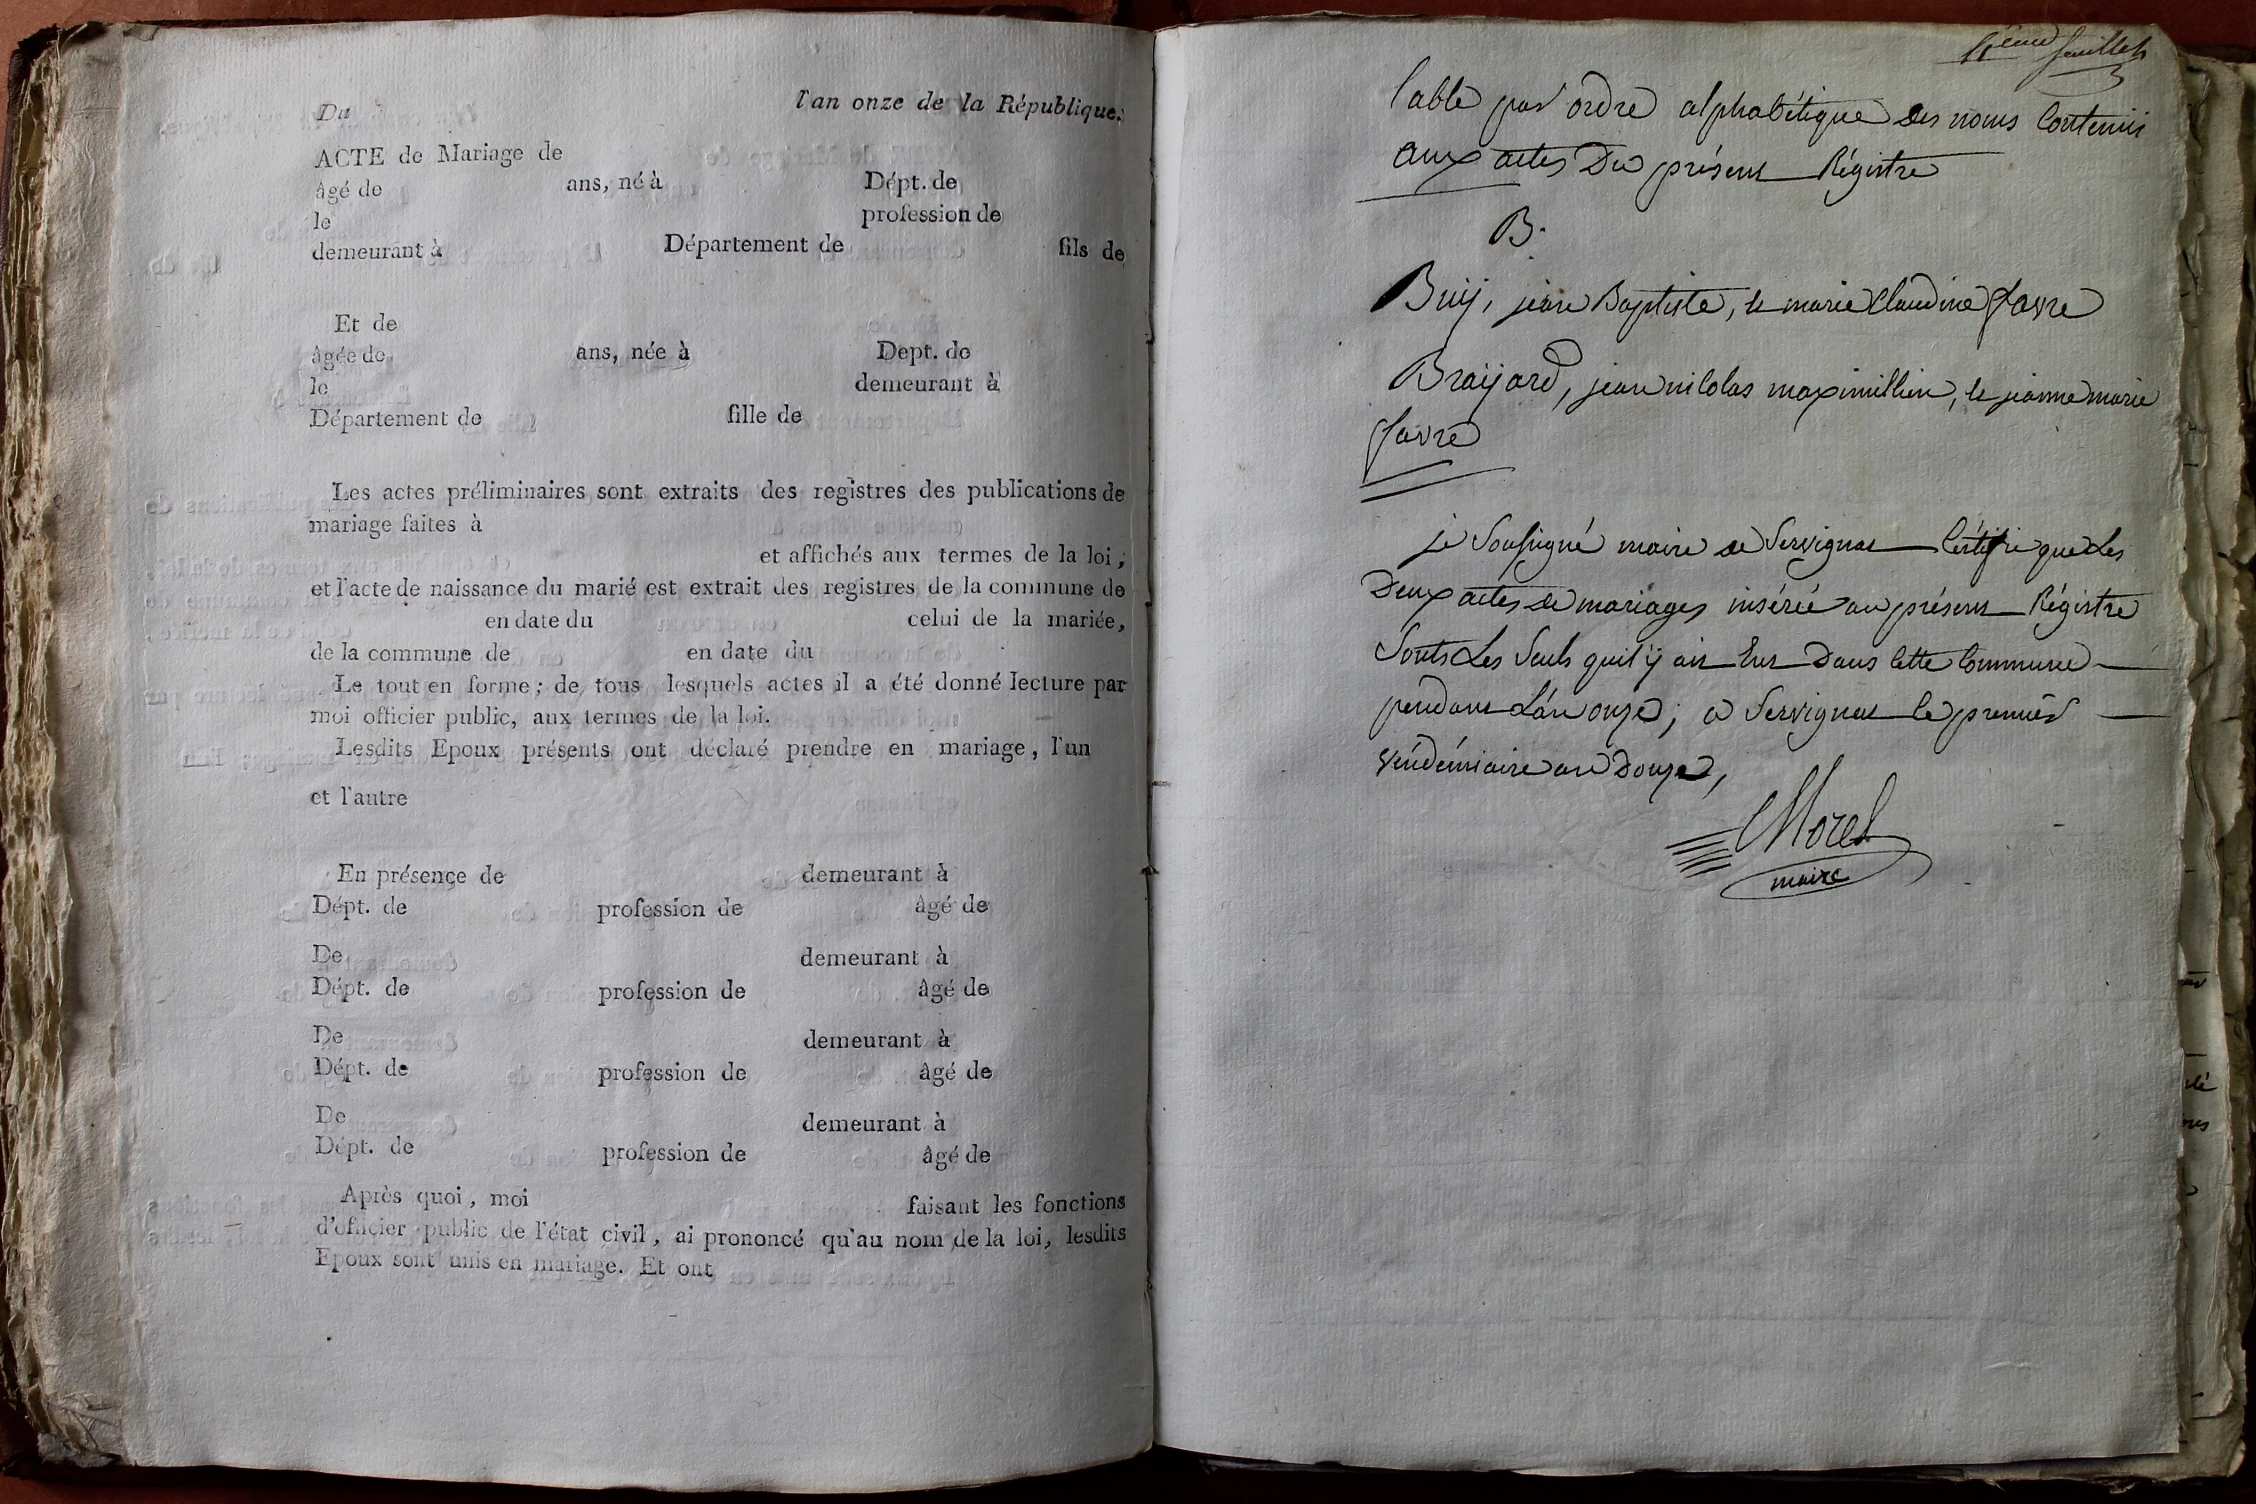 Du l'an onze de la République.
ACTE de Mariage de
âgé de ans, né à Dépt. de
le profession de
demeurant à Département de fils de
Et de
âgée de ans, née à Dept. de
le demeurant à
Département de fille de
Les actes préliminaires sont extraits des registres des publications de
mariage faites à
et affichés aux termes de la loi ;
et l'acte de naissance du marié est extrait des registres de la commune de
en date du celui de la mariée,
de la commune de en date du
Le tout en forme ; de tous lesquels actes il a été donné lecture par
moi officier public, aux termes de la loi.
Lesdits Epoux présents ont déclaré prendre en mariage, l'un
et l'autre
En présence de demeurant à
Dépt. de profession de âgé de
De demeurant à
Dépt. de profession de âgé de
De demeurant à
Dépt. de profession de âgé de
De demeurant à
Dépt. de profession de âgé de
Après quoi, moi faisant les fonctions
d'officier public de l'état civil, ai prononcé qu'au nom de la loi, lesdits
Epoux sont unis en mariage. Et ont
feuillet
Table par ordre alphabétique des noms Contenus
aux actes Du présent Régistre
B.
Buij, jean Baptiste, & marie Claudine favre
Braijard, jean nicolas maximillien, & jeanne marie
favre
je Soussigné maire de Servignat Certifie que Les
Deux actes de mariages inséréé au présent Régistre
Sonts Les Seuls quil ÿ ait Eut Dans Cette Commune
pendant L'an onze ; a Servignat le premier
vendémiaire an Douze,
Morel
maire